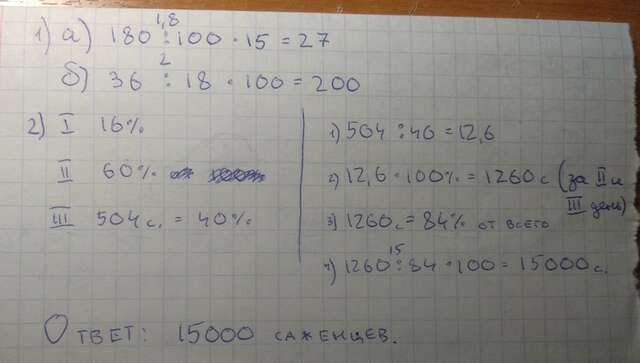 1) а) 180 : 100 · 15 = 27
1,8
б) 36 : 18 · 100 = 200
2
2) I 16%
II 60%
III 504 с. = 40%
1) 504 : 40 = 12,6
2) 12,6 · 100% = 1260 с (за II и III день)
3) 1260 с = 84% от всего
4) 1260 : 84 · 100 = 15000 с.
15
Ответ: 15000 саженцев.